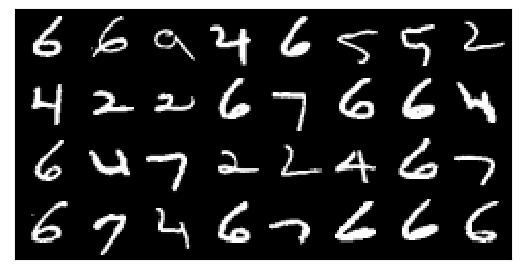 6 6 9 4 6 5 5 2
4 2 2 6 7 6 6 4
6 4 7 2 2 4 6 7
6 7 4 6 7 6 6 6